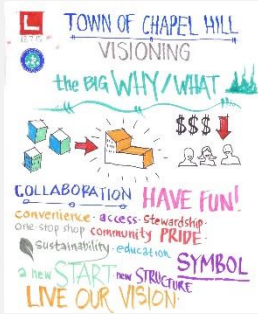 TOWN OF CHAPEL HILL
VISIONING
the BIG WHY/WHAT
$$$
COLLABORATION HAVE FUN!
convenience · access · stewardship ·
one-stop shop community PRIDE ·
sustainability · education SYMBOL
a new START new STRUCTURE
LIVE OUR VISION